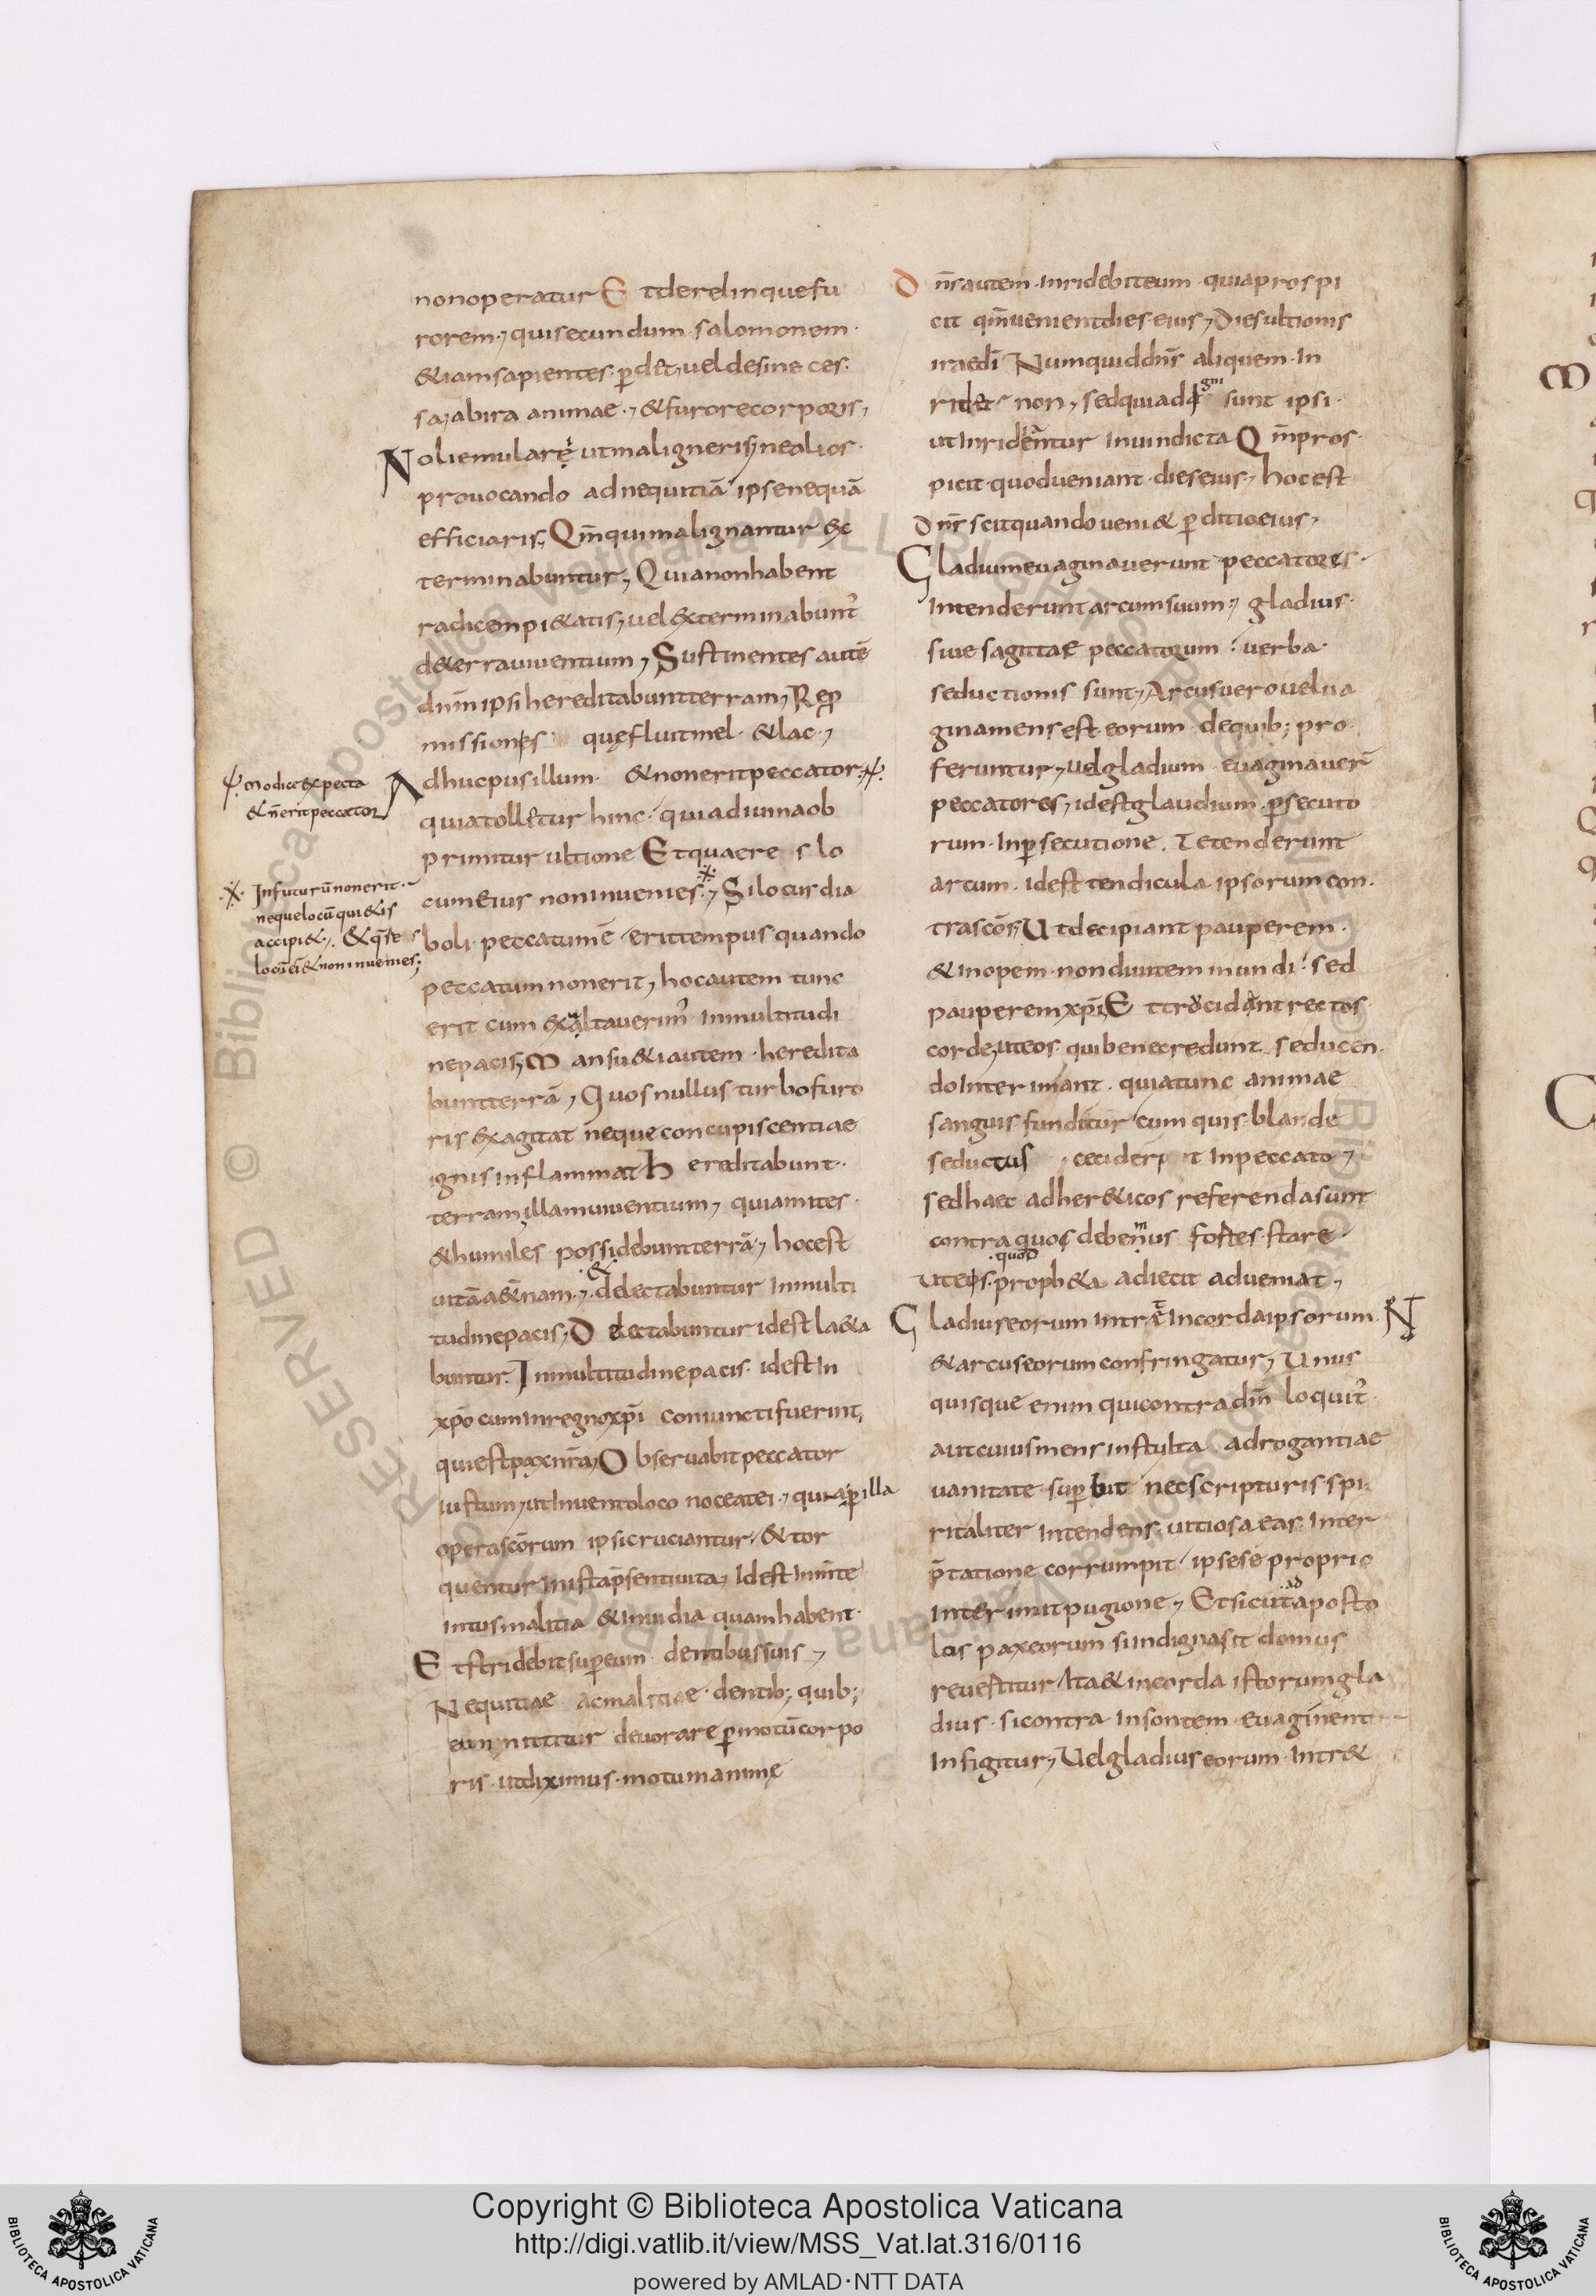 non operatur Et derelinque fu
rorem. qui secundum salomonem.
& iam sapientes. ꝑdet, vel desine ces.
sa, ab ira animae. & furore corporis,
Noli emulare ut maligneris, ne alios.
provocando ad nequitiā ipse nequā
efficiaris, Qm̄ qui malignantur &
terminabuntur, Quia non habent
radicem pi&atis, vel exterminabunt̃
de terra viventium, Sustinentes autē
dnm̄ ipsi hereditabunt terram, Rep
missiones quę fluit mel. & lac.
Adhuc pusillum. & non erit peccator.
quia tolletur hinc. quia divina ob
primitur ultione Et quaeres lo
cum eius non invenies. Si locus dia
boli. peccatum ē erit tempus quando
peccatum non erit, hoc autem tunc
erit cum exaltaverim̃ in multitudi
ne pacis, Mansu&i autem. heredita
bunt terrā, Quos nullus turbo furo
ris exagitat neque concupiscentiae
ignis inflammat Hereditabunt.
terram illam viventium, quia mites.
& humiles possidebunt terrā, hoc est
vitā a&ernam. & delectabuntur in multi
tudine pacis, Delectabuntur id est la&a
buntur. In multitudine pacis. id est in
xp̄o cum in regno xp̄i coniuncti fuerint,
qui est pax nr̄a, Observabit peccator
iustum, ut invento loco noceat ei. quia ꝑ illa
opera scōrum ipsi cruciantur, & tor
quentur in ista p̄senti vita, Id est in mte
intus malitia & invidia quam habent.
Et stridebit super eum dentibus suis,
Nequitiae ac malitiae. dentib; quib;
eum nititur devorare ꝑ motū corpo
ris. ut diximus. motum animę
Modice expecta
& n̄ erit peccator
In futurū non erit.
neque locū qui &is
accipi&. & q̄res
locū ei & non invenies;
Dn̄s autem inridebit eum quia prospi
cit qm̄ venient dies eius, Dies ultionis
irae dī Numquid dn̄s aliquem. in
ridet non, sed quia digni sunt ipsi.
ut inrideantur in vindicta Qm̄ pros.
picit. quod veniant. dies eius, hoc est
Dn̄s scit quando veni& ꝑditio eius,
Gladium evaginaverunt peccatores.
Intenderunt arcum suum, gladius.
sive sagittae peccatorum. verba.
seductionis sunt, Arcus vero vel va
gina mens est eorum de quib; pro
feruntur, vel gladium evaginaver̄
peccatores, id est glaudium ꝑsecuto
rum. In ꝑsecutione. Tetenderunt
arcum. id est tendicula ipsorum con.
tra scōs, Ut decipiant pauperem.
& inopem. non divitem mundi. sed
pauperem xp̄i, Et trucidant rectos
corde, ut eos. qui bene credunt. seducen.
do interimant. quia tunc animae
sanguis funditur cum quis blande
seductus ceciderit in peccato,
sed haec ad her&icos referenda sunt
contra quos debemus fortes stare
ut eos. quod proph&a adiecit adveniat,
Gladius eorum intr& in corda ipsorum
& arcus eorum confringatur, Unus
quisque enim qui contra dm̄ loquit̃.
aut cuius mens in stulta adrogantiae
vanitate superbit nec scripturis spi
ritaliter intendens. vitiosa eas. inter
p̄tatione corrumpit. ipse se proprio
interimit pugione, Et sicut ad aposto
los pax eorum si indigna sit domus
revestitur, Ita & in corda istorum gla
dius. si contra insontem. evaginent
infigitur, Vel gladius eorum. intr&
RESERVED © Biblioteca Apostolica Vaticana ALL RIGHTS RESERVED © Biblioteca Apostolica Vaticana
Copyright © Biblioteca Apostolica Vaticana
http://digi.vatlib.it/view/MSS_Vat.lat.316/0116
powered by AMLAD·NTT DATA
BIBLIOTECA APOSTOLICA VATICANA
BIBLIOTECA APOSTOLICA VATICANA